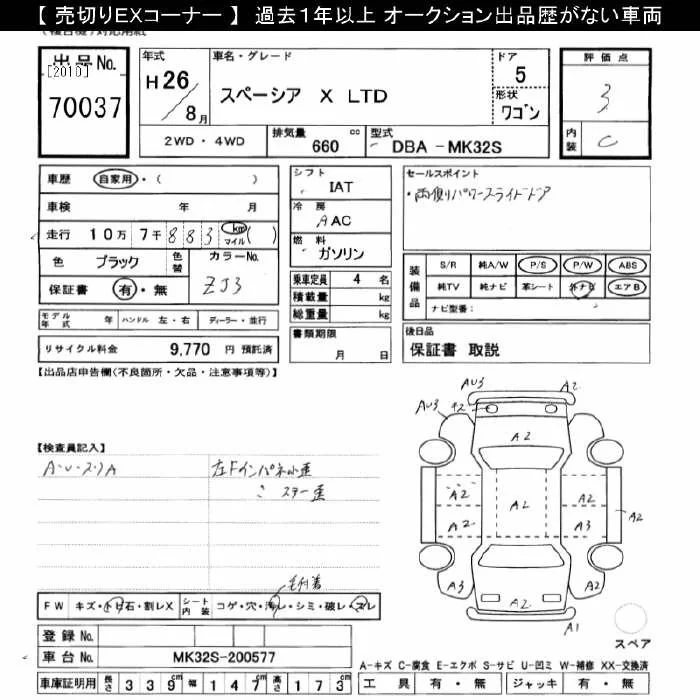 【 売切りEXコーナー 】 過去1年以上 オークション出品歴がない車両
出品No.
[2010]
70037
年式
H 26/8月
車名・グレード
スペーシア X LTD
ドア
5
形状
ワゴン
2WD・4WD
排気量
660 cc
型式
DBA-MK32S
評価点
3
内装
C
車歴 自家用・( )
車検 年 月
走行 10万 7千 8 8 3 km マイル ( )
色 ブラック 色替 カラーNo.
保証書 有・無 ZJ3
モデル年式 年 ハンドル 左・右 ディーラー・並行
リサイクル料金 9,770 円 預託済
シフト
IAT
冷房
AAC
燃料
ガソリン
乗車定員 4 名
積載量 kg
総重量 kg
書類期限
月 日
セールスポイント
・両側パワースライドドア
装備品
S/R 純A/W P/S P/W ABS
純TV 純ナビ 革シート 外ナビ エアB
ナビ型番:
後日品
保証書 取説
【出品店申告欄(不良箇所・欠品・注意事項等)】
【検査員記入】
左Fインパネ小歪
FW キズ・トビ石・割レX シート内装 コゲ・穴・汚レ・シミ・破レ・スレ
登録No.
車台No. MK32S-200577
車庫証明用 長さ 3 3 9 cm 幅 1 4 7 cm 高さ 1 7 3 cm
AU3
A2
AU3
キズ
A2
A2
A2
A2
A2
A3
A2
A3
A2
A2
A1
スペア
A-キズ C-腐食 E-エクボ S-サビ U-凹ミ W-補修 XX-交換済
工具 有・無 ジャッキ 有・無